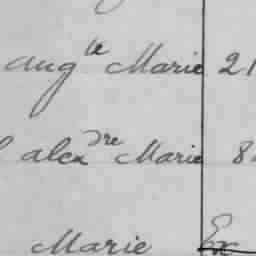 augte Marie 21
alexdre Marie 8
Marie Ex